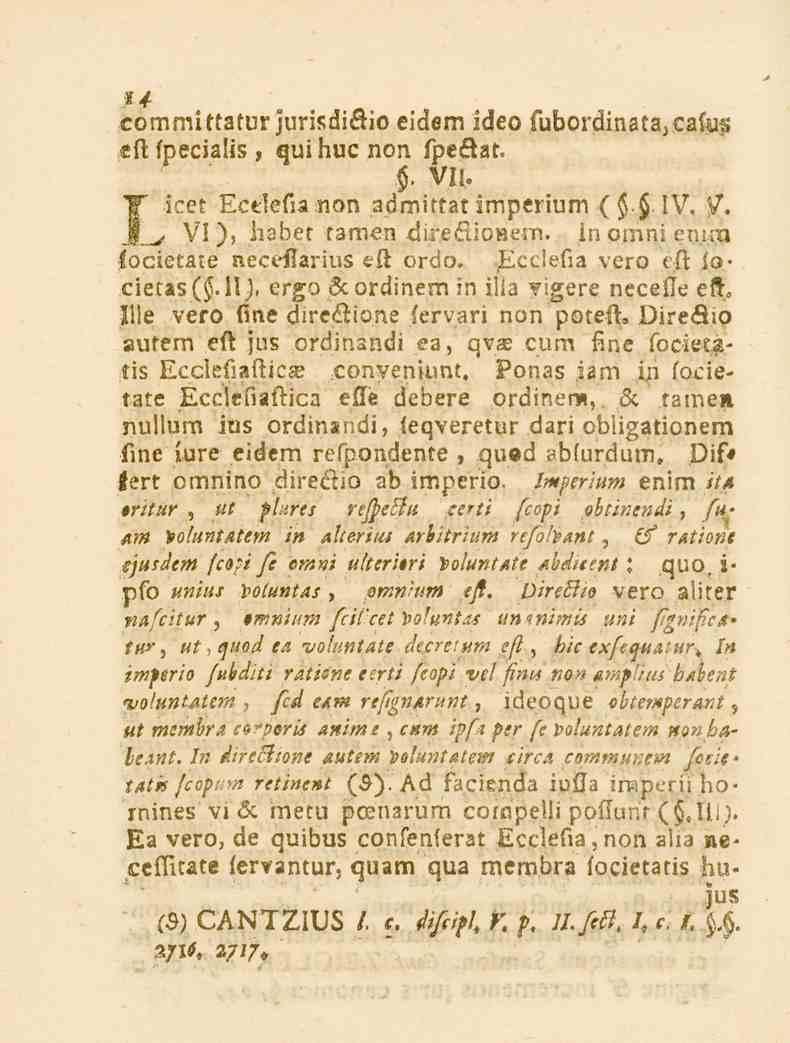 14
committatur jurisdictio eidem ideo ſubordinata, caſus
eſt ſpecialis, qui huc non ſpectat.
§. VII.
Licet Eccleſia non admittat imperium (§.§. IV. V.
VI), habet tamen directionem. in omni enim
ſocietate neceſſarius eſt ordo. Eccleſia vero eſt ſo-
cietas (§. II). ergo & ordinem in illa vigere neceſſe eſt.
Ille vero ſine directione ſervari non poteſt. Directio
autem eſt jus ordinandi ea, qvæ cum fine ſocieta-
tis Eccleſiaſticæ conveniunt. Ponas iam in ſocie-
tate Eccleſiaſtica eſſe debere ordinem, & tamen
nullum ius ordinandi, ſeqveretur dari obligationem
ſine iure eidem reſpondente, quod abſurdum. Dif-
fert omnino directio ab imperio. Imperium enim ita
oritur, ut plures reſpectu certi ſcopi obtinendi, ſu-
am voluntatem in alterius arbitrium reſolvant, & ratione
ejusdem ſcopi ſe omni ulteriori voluntate abdicent: quo, i-
pſo unius voluntas, omnium eſt. Directio vero aliter
naſcitur, omnium ſcilicet voluntas unanimis uni ſignifica-
tur, ut, quod ea voluntate decretum eſt, hic exſequatur. In
imperio ſubditi ratione certi ſcopi vel finis non amplius habent
voluntatem, ſed eam reſignarunt, ideoque obtemperant,
ut membra corporis animæ, cum ipſa per ſe voluntatem non ha-
beant. In directione autem voluntatem circa communem ſocie-
tatis ſcopum retinent (9). Ad facienda iuſſa imperii ho-
mines vi & metu pœnarum compelli poſſunt (§. III).
Ea vero, de quibus conſenſerat Eccleſia, non alia ne-
ceſſitate ſervantur, quam qua membra ſocietatis hu-
jus
(9) CANTZIUS l. c. diſcipl. V. p. II. ſect. I. c. I. §.§.
2716. 2717.